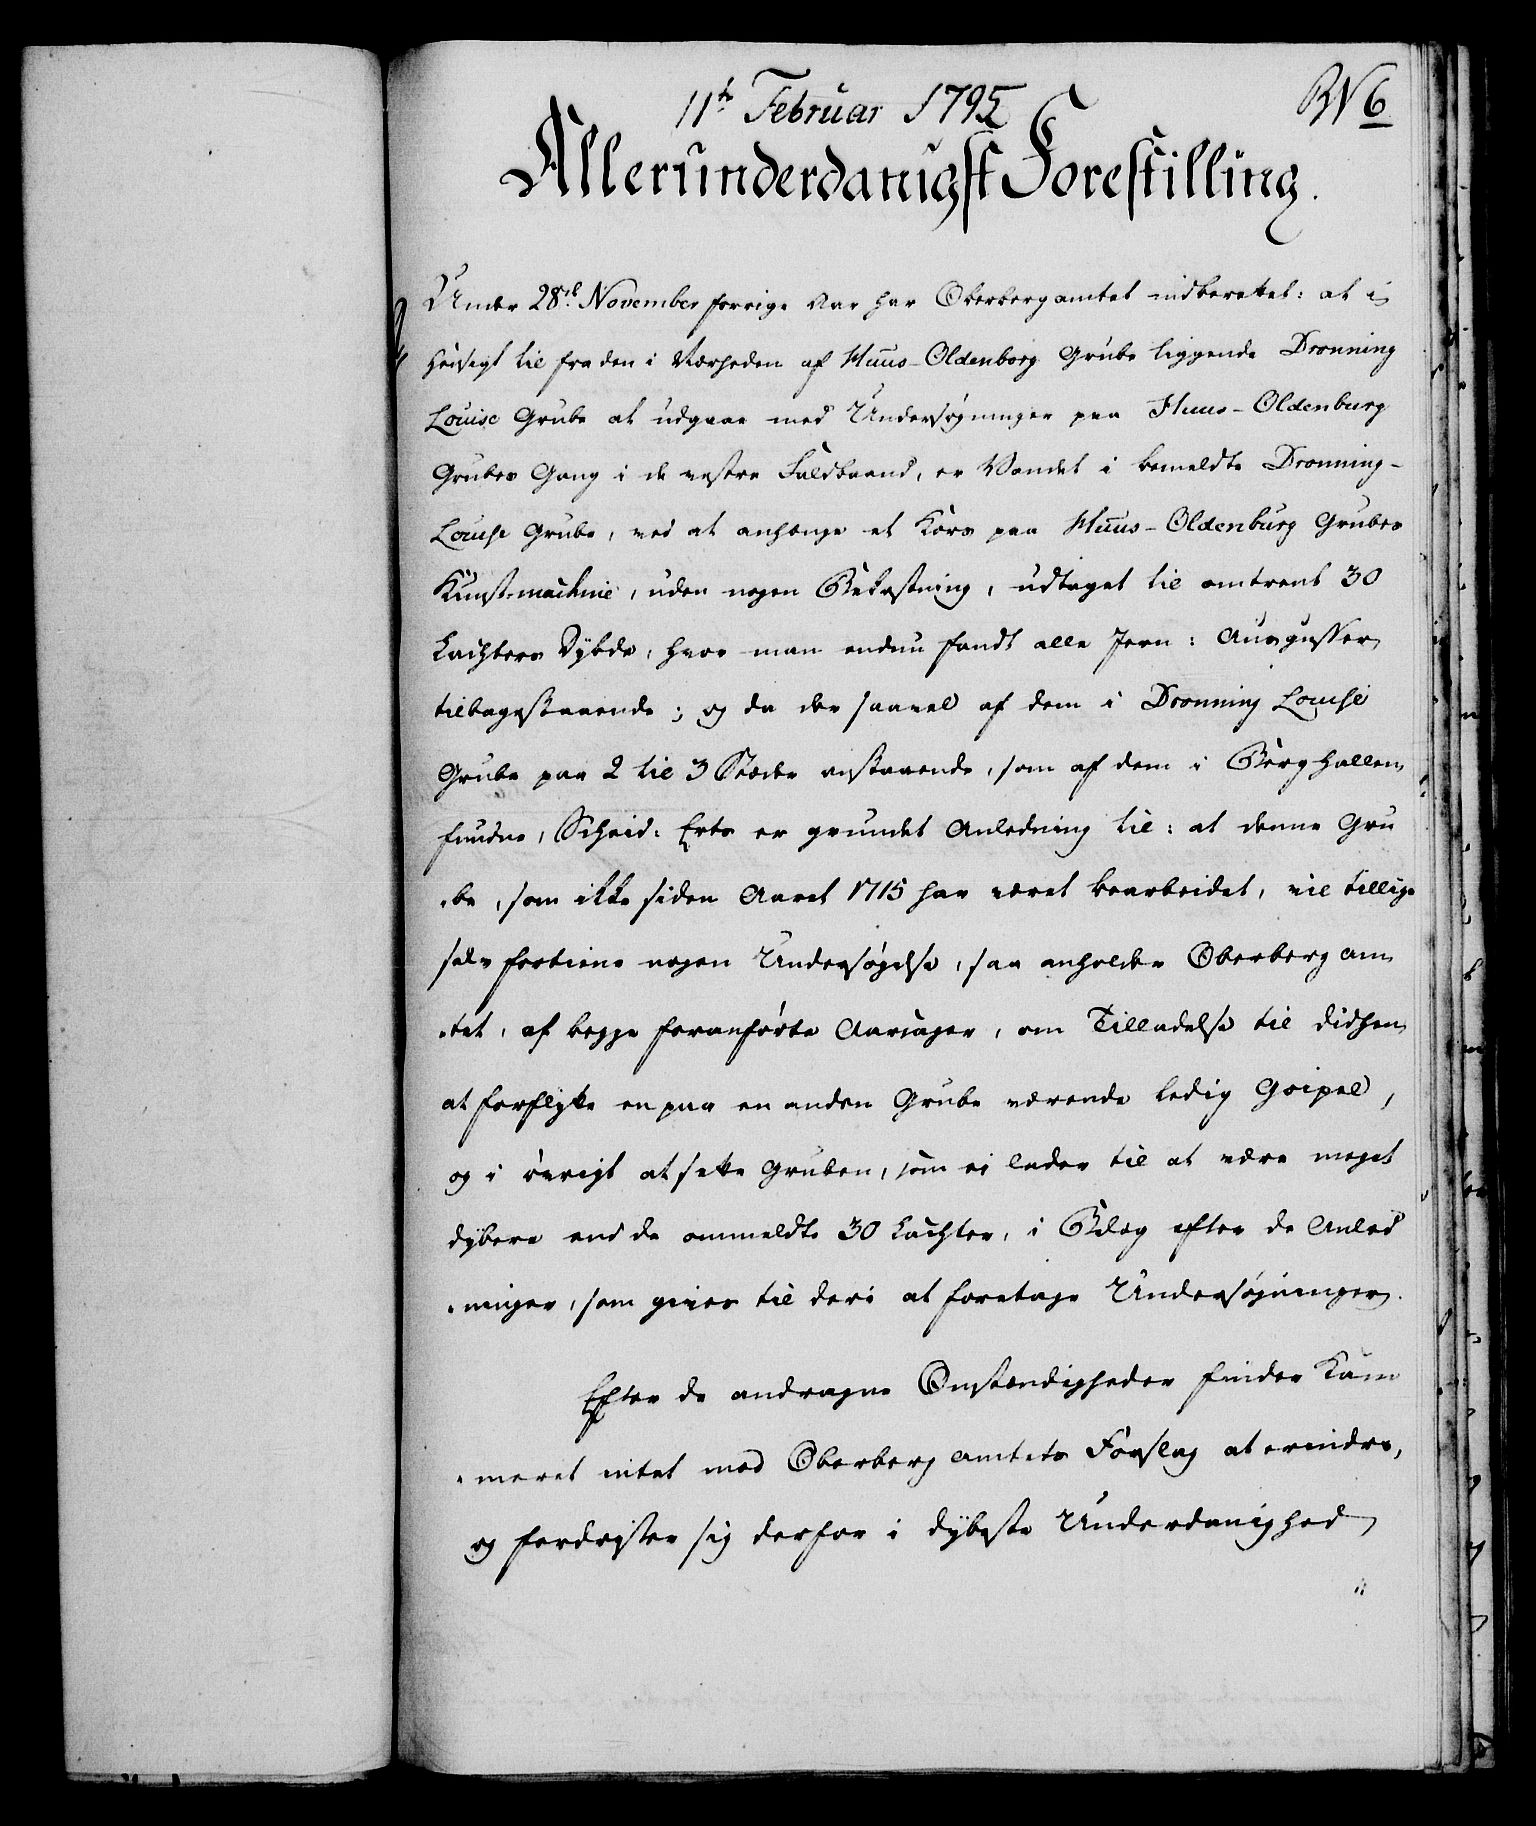 11te Februar 1795
RN 6
Allerunderdanigst Forestilling.
Under 28de November forrige Aar har Oberbergamtet indberettet: at i
Hensigt til fra den i Nærheden af Huus-Oldenborg Grube liggende Dronning
Louise Grube at udgaae med Undersøgninger paa Huus-Oldenburg
Grubes Gang i de vestre Faldbaand, er Vandet i bemeldte Dronning-
Louise Grube, ved at anhænge et Kors paa Huus-Oldenburg Grubes
Kunst-machine, uden nogen Bekostning, udtaget til omtrent 30
Lachters Dybde, hvor man endnu fandt alle Jern: Ausgusser
tilbagestaaende; og da der saavel af dem i Dronning Louise
Grube paa 2 til 3 Stæder anstaaende, som af dem i Berghallen
fundne, Scheid: Erts er grundet Anledning til: at denne Gru
-be, som ikke siden Aaret 1715 har været bearbeidet, vil tillige
selv fortiene nogen Undersøgelse, saa anholder Oberbergam
-tet, af begge foranførte Aarsager, om Tilladelse til didhen
at forflytte en paa en anden Grube værende ledig Goipel,
og i øvrigt at sætte Gruben, som ei lader til at være meget
dybere end de ommeldte 30 Lachter, i Belæg efter de Anled
-ninger, som gives til deri at foretage Undersøgninger.
Efter de andragne Omstændigheder finder Kam
-meret intet med Oberbergamtets Forslag at erindre,
og fordrister sig derfor i dybeste Underdanighed